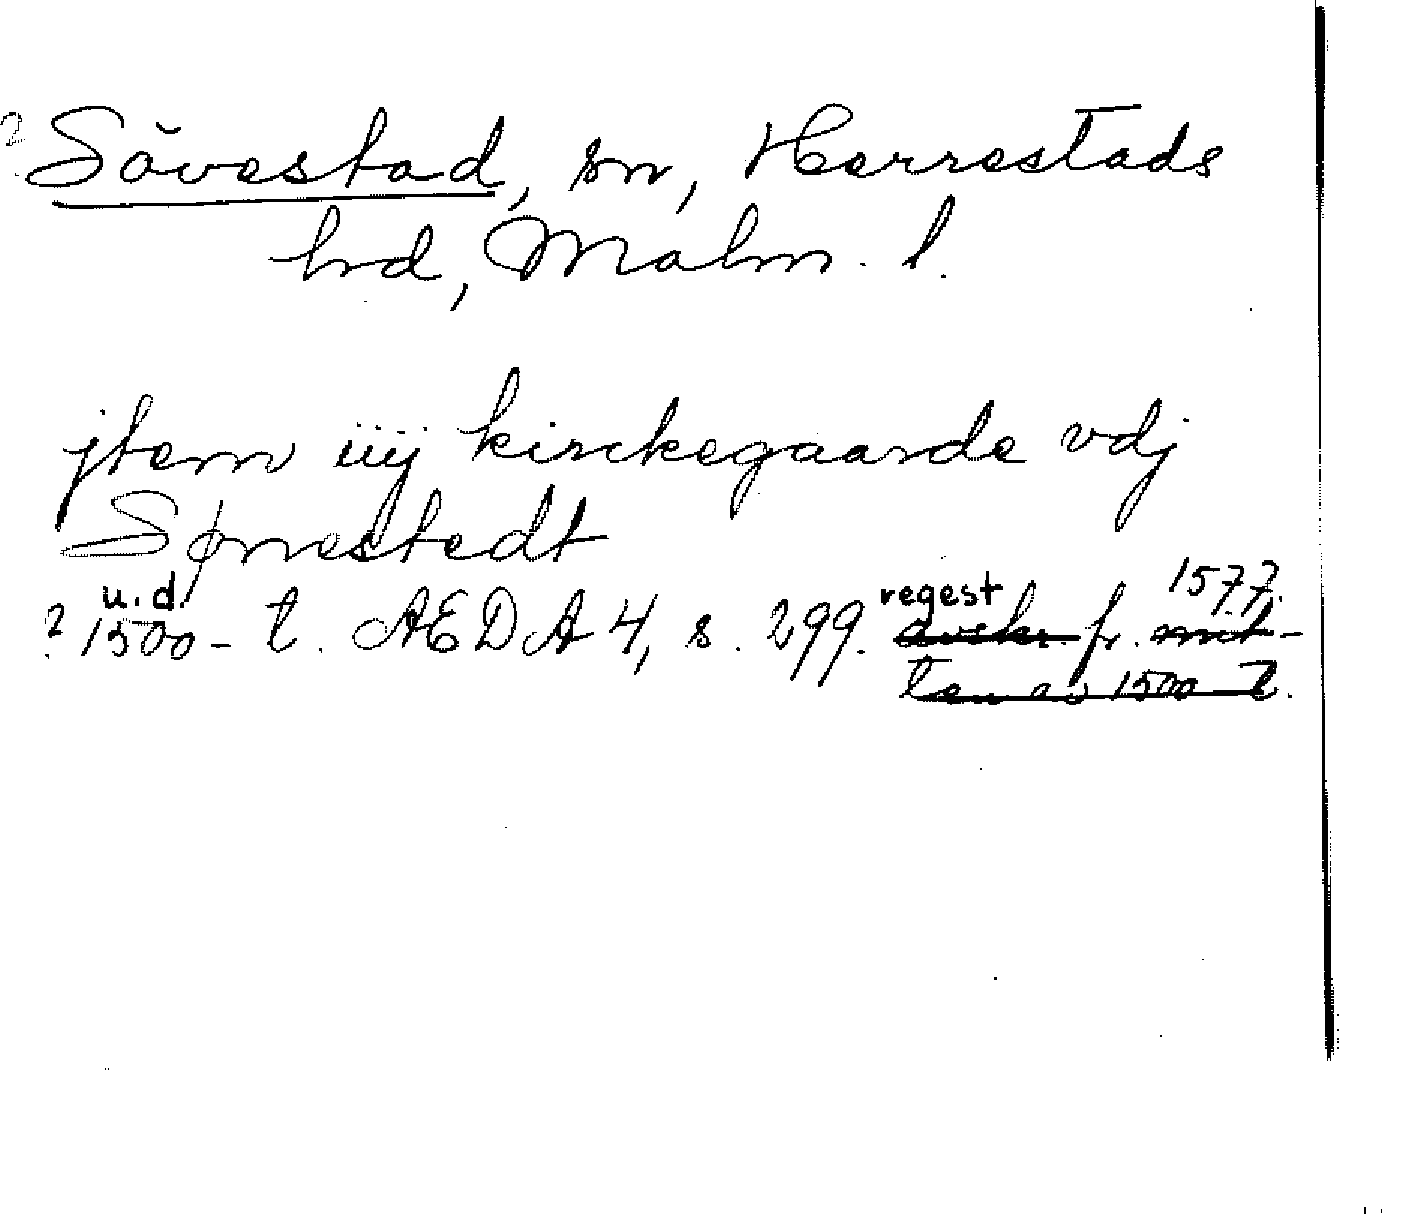 ? Sövestad, sn, Herrestads
hrd, Malm. l.
jtem iiij kirckegaarde vdj
Sønestedt
u.d.
? 1500-t. AEDA 4, s. 299. regest avskr. fr. 1577. mit-
ten av 1500-t.